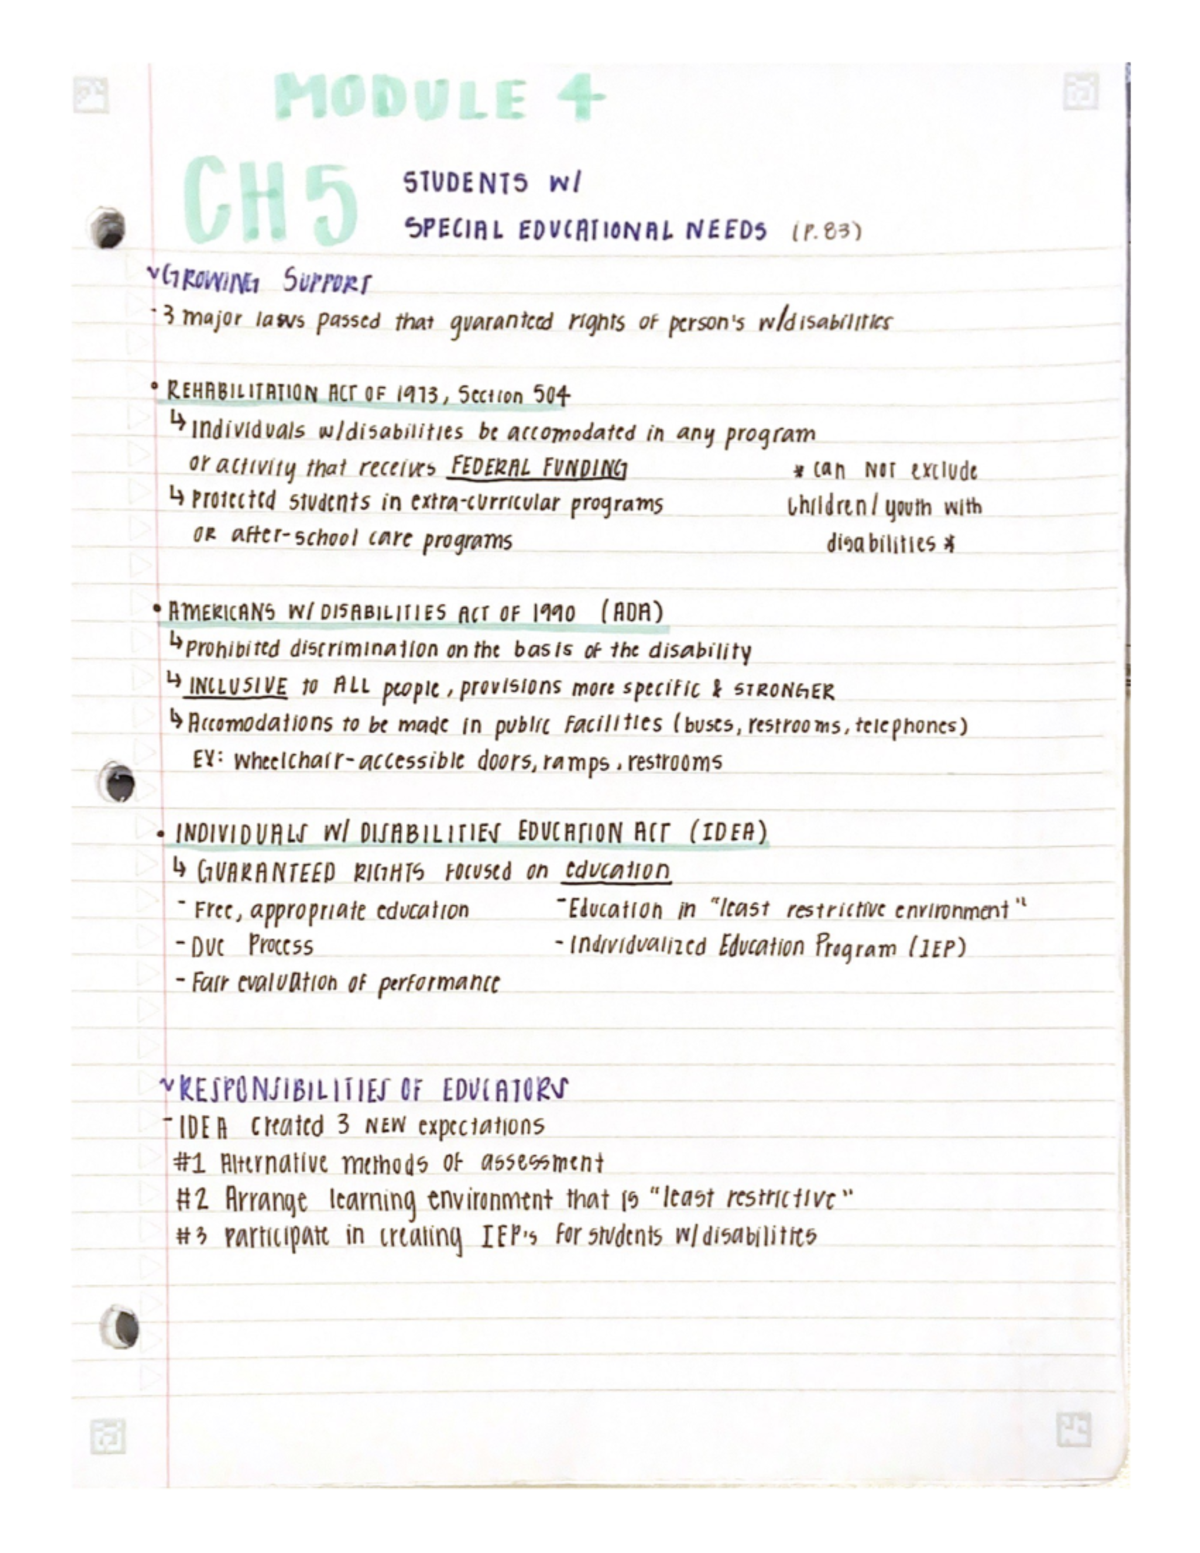 MODULE 4
CH 5 STUDENTS W/
SPECIAL EDUCATIONAL NEEDS (P. 83)
GROWING SUPPORT
- 3 major laws passed that guaranteed rights of person's w/disabilities
• REHABILITATION ACT OF 1973, Section 504
↳ individuals w/disabilities be accomodated in any program
or activity that receives FEDERAL FUNDING
↳ protected students in extra-curricular programs
OR after-school care programs
* can NOT exclude
children/youth with
disabilities *
• AMERICANS W/ DISABILITIES ACT OF 1990 (ADA)
↳ prohibited discrimination on the basis of the disability
↳ INCLUSIVE to ALL people, provisions more specific & STRONGER
↳ Accomodations to be made in public facilities (buses, restrooms, telephones)
EX: wheelchair-accessible doors, ramps, restrooms
• INDIVIDUALS W/ DISABILITIES EDUCATION ACT (IDEA)
↳ GUARANTEED RIGHTS focused on education
- Free, appropriate education
- Due Process
- Fair evaluation of performance
- Education in "least restrictive environment"
- Individualized Education Program (IEP)
RESPONSIBILITIES OF EDUCATORS
- IDEA created 3 NEW expectations
#1 Alternative methods of assessment
#2 Arrange learning environment that is "least restrictive"
#3 participate in creating IEP's for students w/disabilities